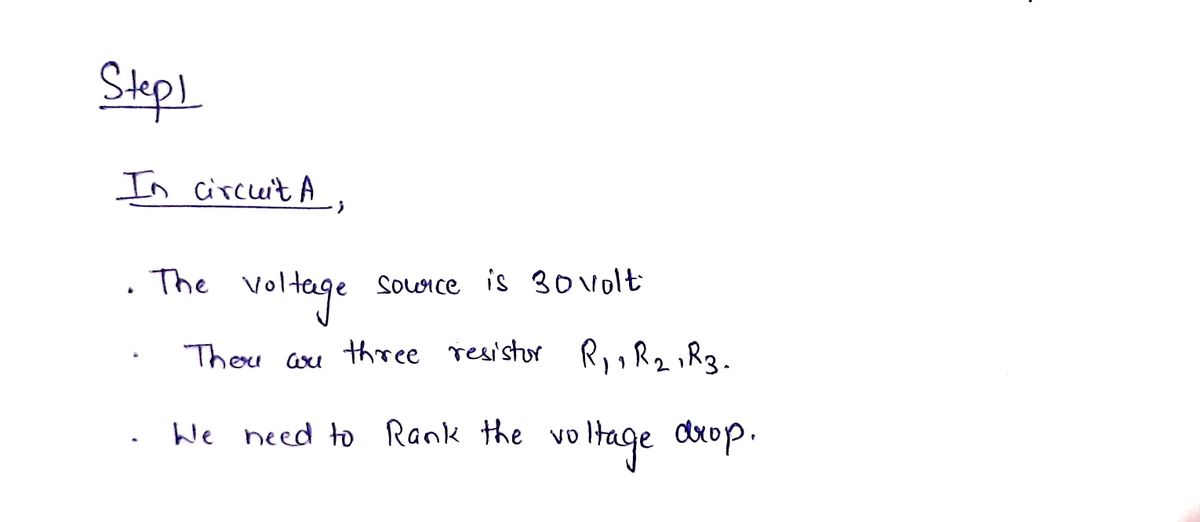 Step1
In circuit A,
. The voltage source is 30 volt
. There are three resistor R1, R2, R3.
. We need to Rank the voltage drop.